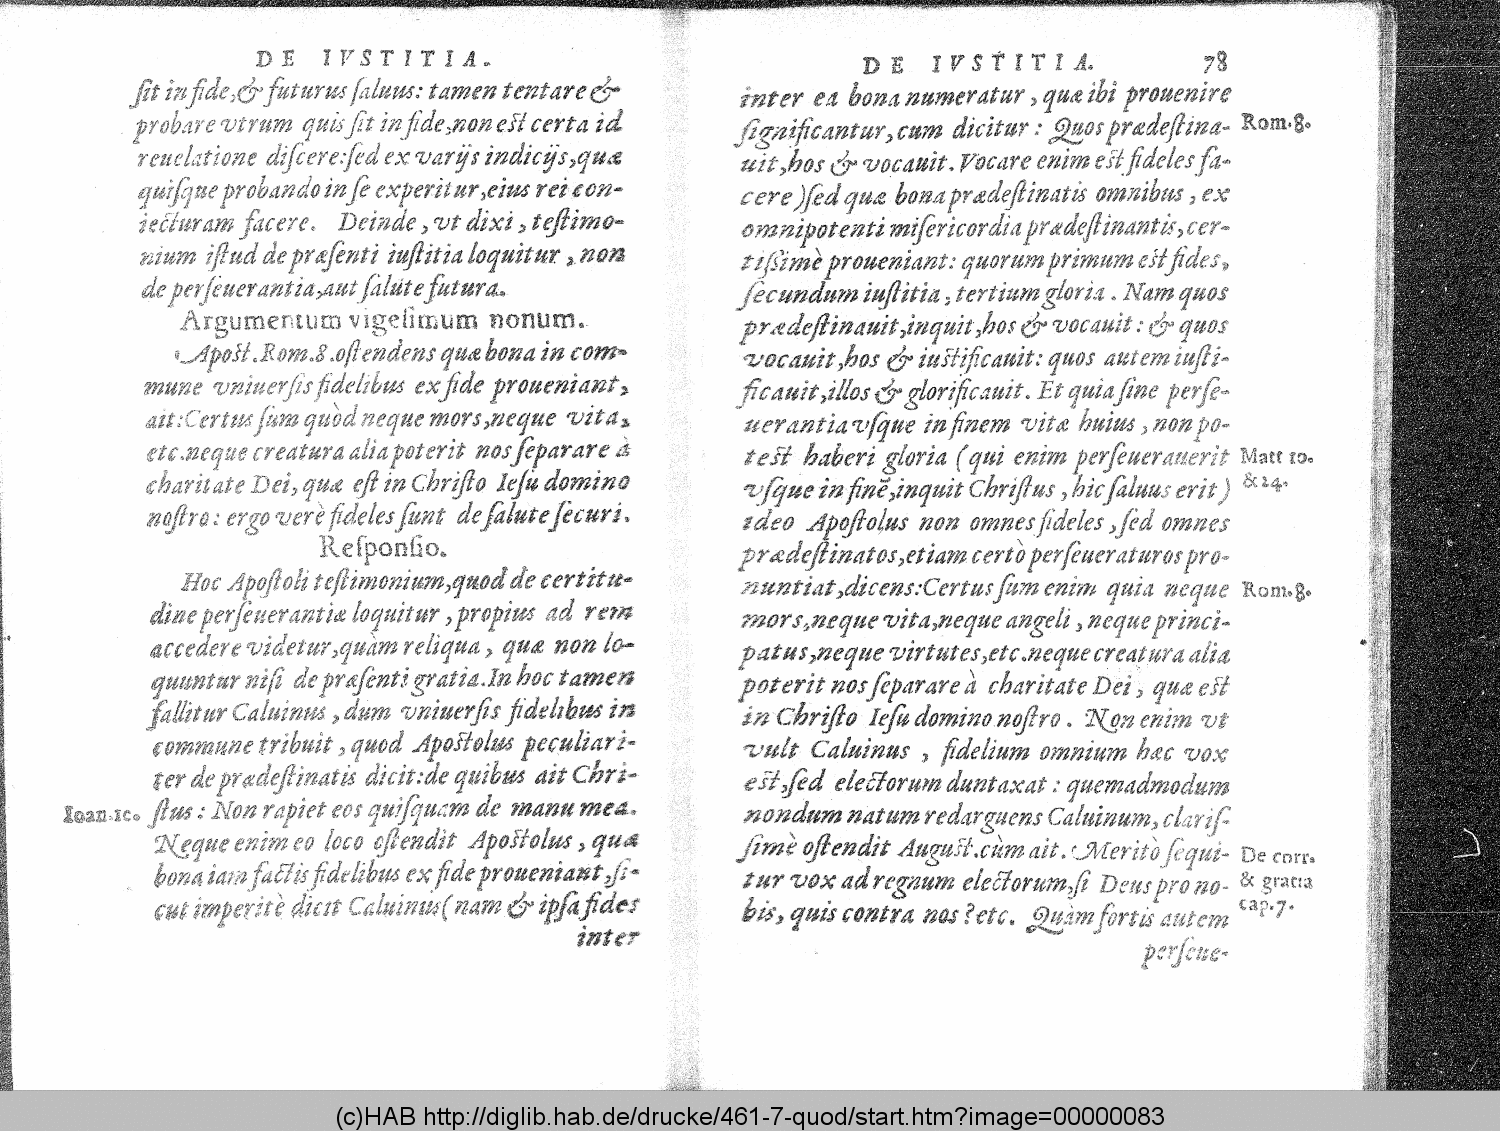 DE IVSTITIA.
ſit in fide,& futurus ſaluus: tamen tentare &
probare vtrum quis ſit in fide,non est certa id
reuelatione diſcere:ſed ex varijs indicijs,quæ
quiſque probando in ſe experitur,eius rei con-
iecturam facere. Deinde, vt dixi, teſtimo-
nium iſtud de præſenti iuſtitia loquitur, non
de perſeuerantia,aut ſalute futura.
Argumentum vigeſimum nonum.
Apost.Rom.8.oſtendens quæ bona in com-
mune vniuerſis fidelibus ex fide proueniant,
ait:Certus ſum quòd neque mors,neque vita,
etc.neque creatura alia poterit nos ſeparare à
charitate Dei, quæ eſt in Chriſto Ieſu domino
noſtro: ergo verè fideles ſunt de ſalute ſecuri.
Reſponſio.
Hoc Apoſtoli teſtimonium,quod de certitu-
dine perſeuerantiæ loquitur, propius ad rem
accedere videtur,quàm reliqua, quæ non lo-
quuntur niſi de præſenti gratia.In hoc tamen
fallitur Caluinus, dum vniuerſis fidelibus in
commune tribuit, quod Apostolus peculiari-
ter de prædeſtinatis dicit:de quibus ait Chri-
Ioan.10. ſtus: Non rapiet eos quiſquam de manu mea.
Neque enim eo loco oſtendit Apostolus, quæ
bona iam factis fidelibus ex fide proueniant,ſi-
cut imperitè dicit Caluinus(nam & ipſa fides
inter
DE IVSTITIA. 78
inter ea bona numeratur, quæ ibi prouenire
ſignificantur,cum dicitur: Quos prædeſtina- Rom.8.
uit,hos & vocauit. Vocare enim est fideles fa-
cere)ſed quæ bona prædeſtinatis omnibus, ex
omnipotenti miſericordia prædeſtinantis,cer-
tißimè proueniant: quorum primum est fides,
ſecundum iuſtitia, tertium gloria. Nam quos
prædeſtinauit,inquit,hos & vocauit: & quos
vocauit,hos & iustificauit: quos autem iuſti-
ficauit,illos & glorificauit. Et quia ſine perſe-
uerantia vſque in finem vitæ huius, non po-
test haberi gloria (qui enim perſeuerauerit Matt 10.
vſque in finẽ,inquit Chriſtus, hic ſaluus erit) & 24.
ideo Apoſtolus non omnes fideles, ſed omnes
prædeſtinatos,etiam certò perſeueraturos pro-
nuntiat,dicens:Certus ſum enim quia neque Rom.8.
mors,neque vita,neque angeli, neque princi-
patus,neque virtutes,etc.neque creatura alia
poterit nos ſeparare à charitate Dei, quæ est
in Chriſto Ieſu domino noſtro. Non enim vt
vult Caluinus, fidelium omnium hæc vox
est,ſed electorum duntaxat: quemadmodum
nondum natum redarguens Caluinum, clariſ-
ſimè oſtendit August.cùm ait. Meritò ſequi- De corr.
tur vox ad regnum electorum,ſi Deus pro no- & gratia
bis, quis contra nos?etc. Quàm fortis autem cap.7.
perſeue-
(c)HAB http://diglib.hab.de/drucke/461-7-quod/start.htm?image=00000083